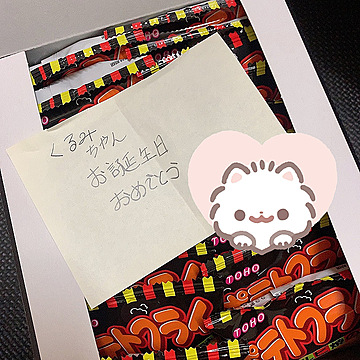 くるみ
ちゃん
お誕生日
おめでとう
TOHO
TOHO
ポテトフライ
TOHO